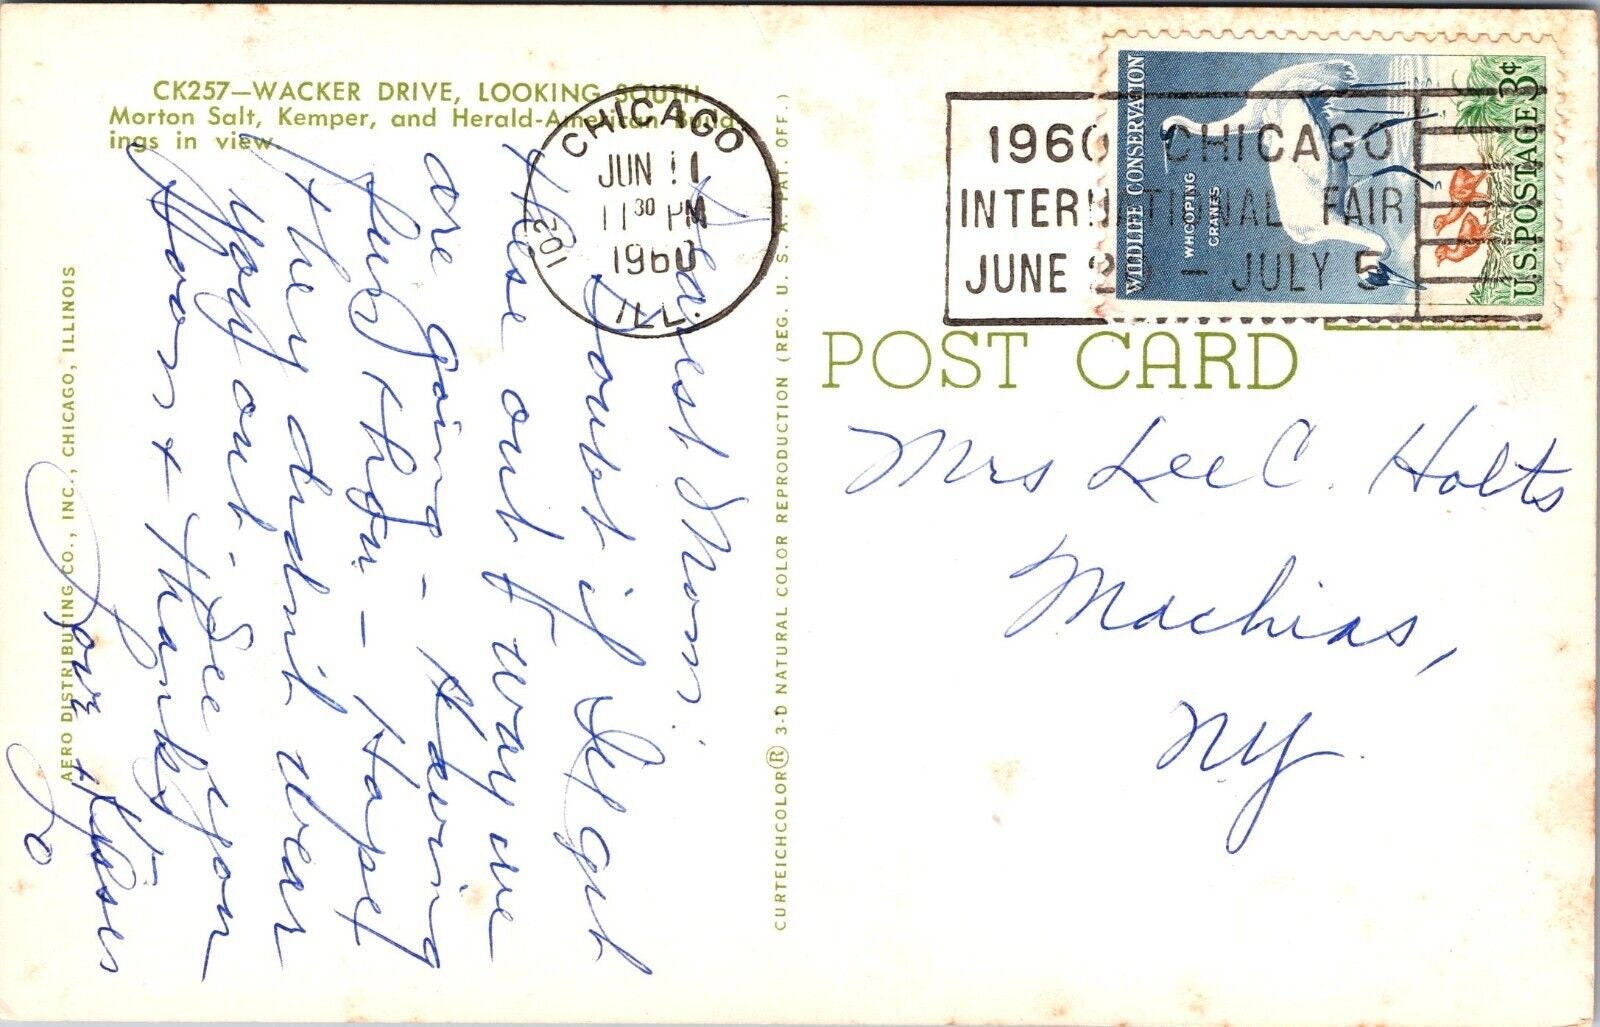 CK257—WACKER DRIVE, LOOKING SOUTH
Morton Salt, Kemper, and Herald-American Build-
ings in view.
CHICAGO
JUN 11
11 30 PM
1960
ILL.
102
1960 CHICAGO
INTERNATIONAL FAIR
JUNE 20 - JULY 5
WILDLIFE CONSERVATION
WHOOPING
CRANES
U.S. POSTAGE 3¢
POST CARD
Dearest Mom:
Doubt if I'll get
these out & way we
are going - Having
fun then - Hope
they didn't wear
you out - See you
soon & thanks
Love & Kisses
Jo
Mrs Lee C. Holts
Machias,
NY.
AERO DISTRIBUTING CO., INC., CHICAGO, ILLINOIS
CURTEICHCOLOR® 3-D NATURAL COLOR REPRODUCTION (REG. U. S. A. PAT. OFF.)